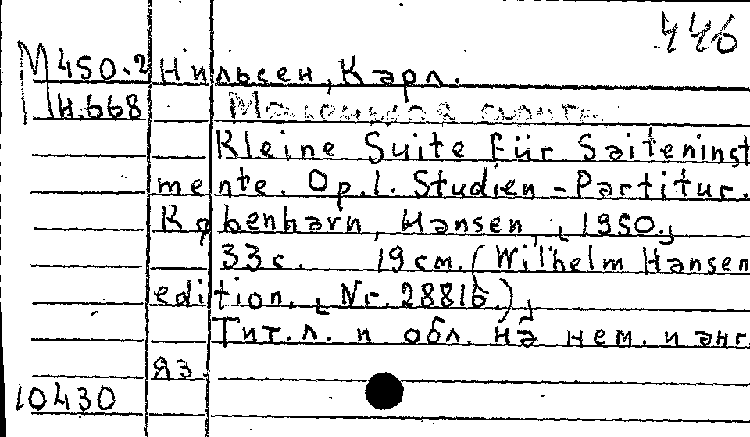 446
М450.2 Нильсен, Карл.
Н.668 Маленькая сюита
Kleine Suite für Saiteninst
mente. Op.1. Studien-Partitur.
København, Hansen, [1950]
33с. 19см. (Wilhelm Hansen
edition. [Nr. 2881b.)]
Тит.л. и обл. на нем. и анг.
яз.
10430